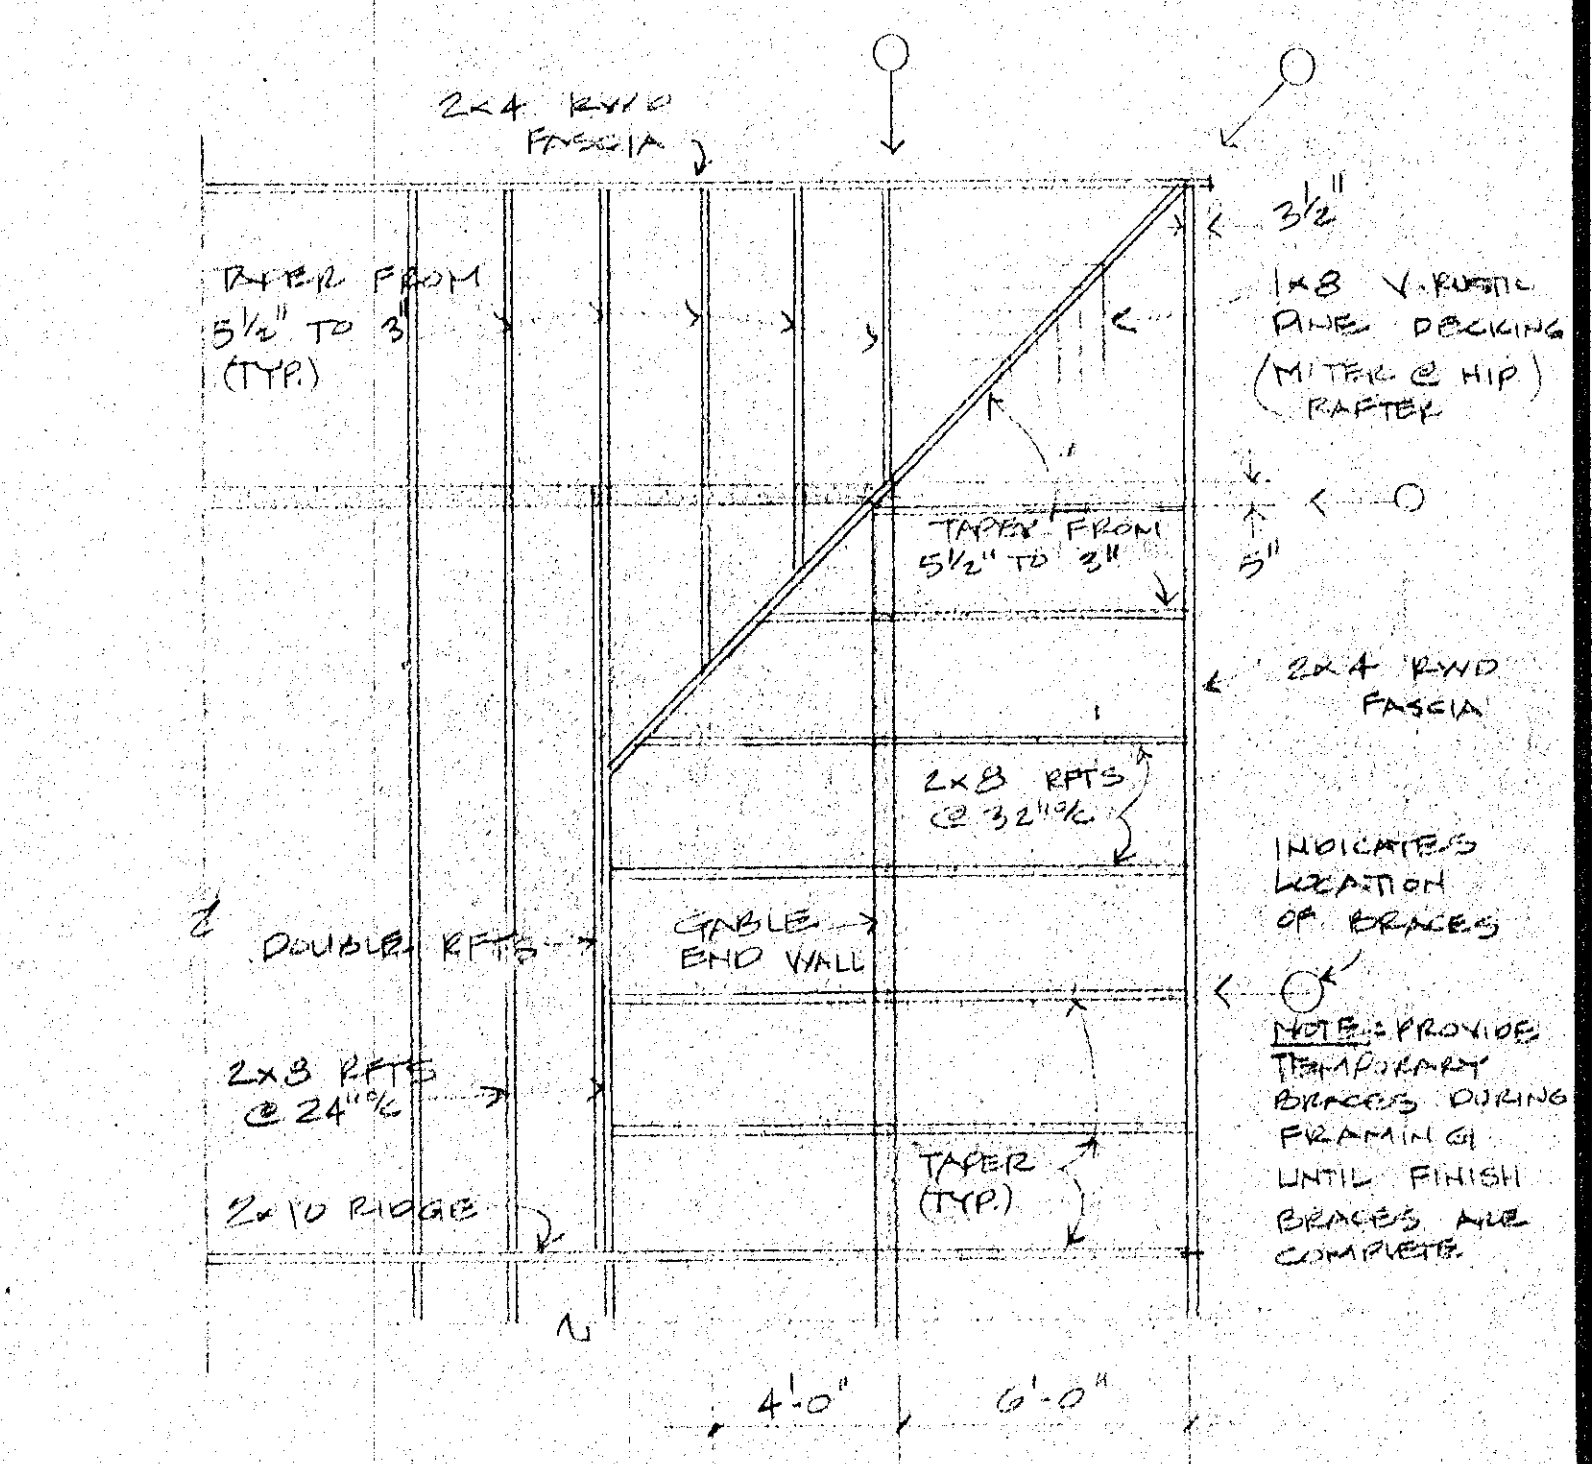 2x4 RWD
FASCIA
3½"
TAPER FROM
5½" TO 3"
(TYP.)
1x8 V-RUSTIC
PINE DECKING
(MITER @ HIP)
RAFTER
TAPER FROM
5½" TO 3"
5"
2x4 RWD
FASCIA
2x8 RFTS
@ 32" o/c
INDICATES
LOCATION
OF BRACES
DOUBLE RFTS
GABLE
END WALL
NOTE: PROVIDE
TEMPORARY
BRACES DURING
FRAMING
UNTIL FINISH
BRACES ARE
COMPLETE
2x8 RFTS
@ 24" o/c
TAPER
(TYP.)
2x10 RIDGE
4'-0"
6'-0"